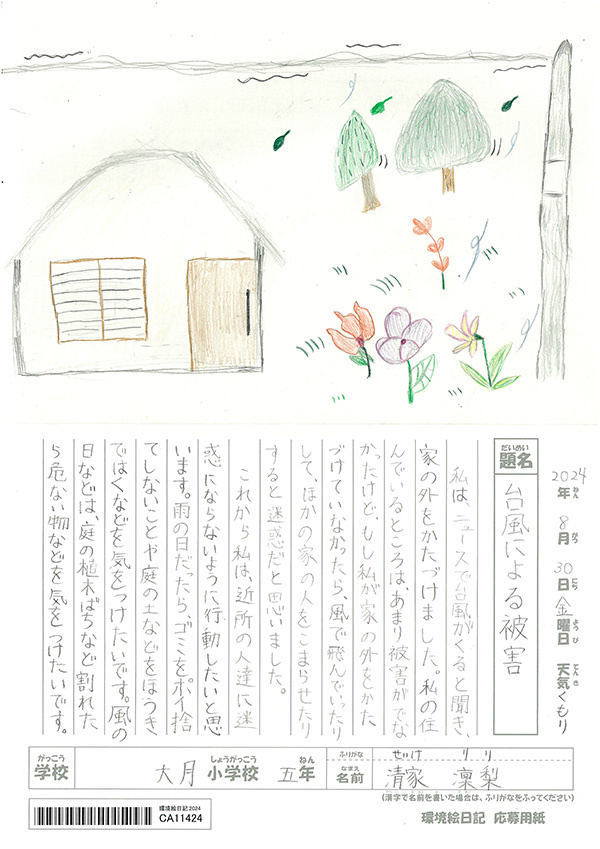 2024年 8月 30日 金曜日 天気 くもり
ねん がつ にち ようび てんき
だいめい
題名
台風による被害
私は、ニュースで台風がくると聞き、
家の外をかたづけました。私の住
んでいるところは、あまり被害がでな
かったけど、もし私が家の外をかた
づけていなかったら、風で飛んでいったり
して、ほかの家の人をこまらせたり
すると迷惑だと思いました。
これから私は、近所の人達に迷
惑にならないように行動したいと思
います。雨の日だったら、ゴミをポイ捨
てしないことや庭の土などをほうき
ではくなどを気をつけたいです。風の
日などは、庭の植木ばちなど割れた
ら危ない物などを気をつけたいです。
がっこう しょうがっこう ねん
学校 大月 小学校 五年
ふりがな せいけ りり
なまえ
名前 清家 凜梨
(漢字で名前を書いた場合は、ふりがなをふってください)
環境絵日記2024
CA11424
環境絵日記 応募用紙